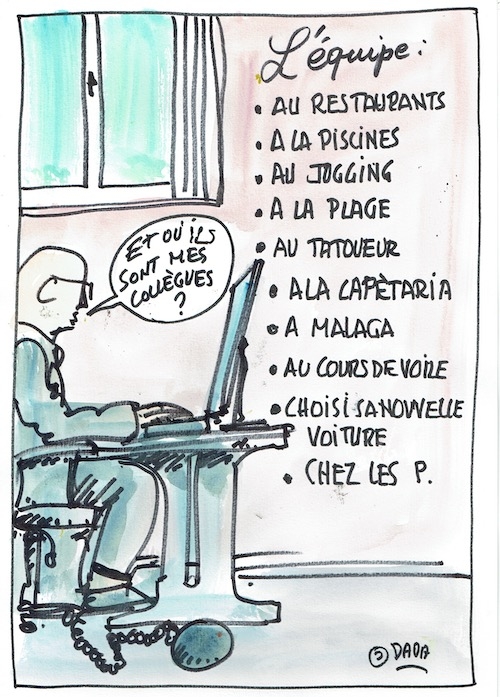 L'équipe :
• AU RESTAURANTS
• A LA PISCINES
• AU JOGGING
• A LA PLAGE
• AU TATOUEUR
• A LA CAPÈTARIA
• A MALAGA
• AU COURS DE VOILE
• CHOISI SA NOUVVELLE
VOITURE
• CHEZ LES P.
ET OÙ ILS
SONT MES
COLLÈGUES
?
5 DADA